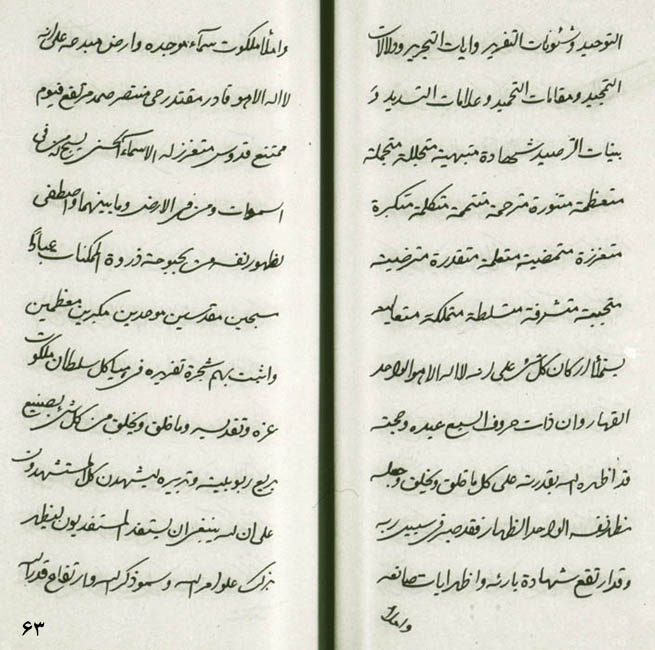 التوحيد و شئونات التفريد و ايات التجريد و دلالات
التمجيد و مقامات التحميد و علامات التسديد و
بينات شهادة متبهية متجللة متجملة
متعظمة متنورة مترحمة متتممة متكلمة متكبرة
متعززة متعلمة متقدرة مترضية
متحببة متشرفة متسلطة متملكة متعالية
اركان كل شئ على انه لا اله الا هو الواحد
القهار و ان ذات حروف السبع عبده و حجته
قد اظهره الله بقدرته على كل ما خلق و يخلق و جعله
مظهر نفسه الواحد الظهار فقد صبر فى سبيل ربه
و قد ارتفع شهادة بارئه و اظهر ايات صانعه
و املأ
و املأ ملكوت سماء موجده و ارض مبدعه على انه
لا اله الا هو قادر مقتدر حى منتصر صمد مرتفع قيوم
ممتنع قدوس متعزز له الاسماء الحسنى يسبح له من فى
السموات و من فى الارض و ما بينهما و اصطفى
لظهور نفسه من بحبوحة ذروة الممكنات عبادا
مسبحين مقدسين موحدين مكبرين معظمين
و اثبت بهم شجرة تفريده فى هياكل سلطان ملكوت
عزه و تقديسه و ما خلق و يخلق من كل شئ
ربوبيته و تدبيره ليشهدن كل المستشهدون
على ان لله ينبغى ان ليظهر
بذلك علو امر الله و سمو ذكر الله و ارتفاع قدر الله
۶۳